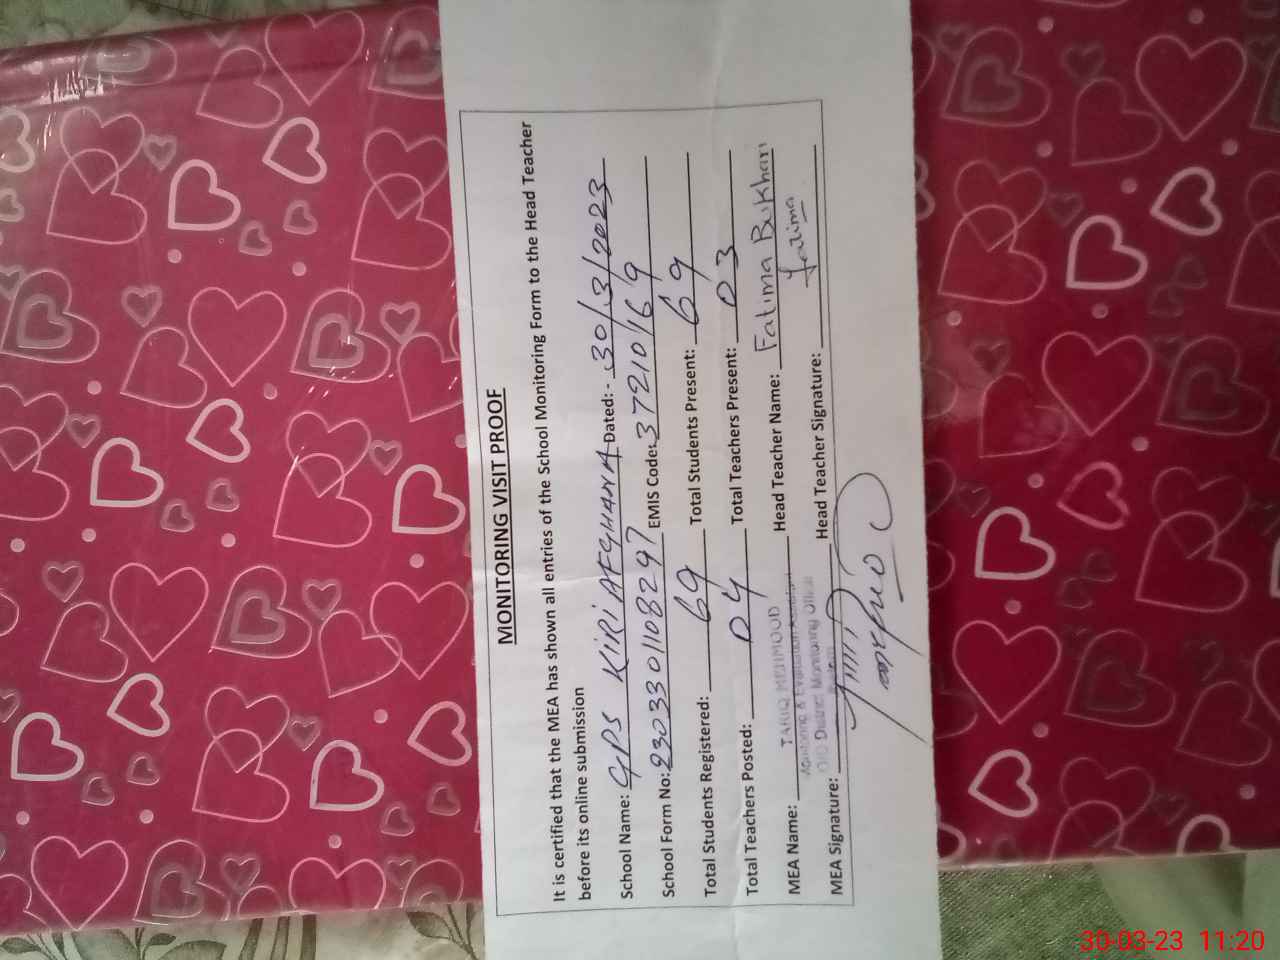 MONITORING VISIT PROOF
It is certified that the MEA has shown all entries of the School Monitoring Form to the Head Teacher
before its online submission
School Name: GPS KIRI AFGHANA Dated:- 30/3/2023
School Form No: 2303301108297 EMIS Code: 37210169
Total Students Registered: 69 Total Students Present: 69
Total Teachers Posted: 04 Total Teachers Present: 03
MEA Name: TARIQ MEHMOOD Head Teacher Name: Fatima Bukhari
Monitoring & Evaluation
O/O District Monitoring Officer
MEA Signature: Head Teacher Signature: Fatima
30-03-23 11:20